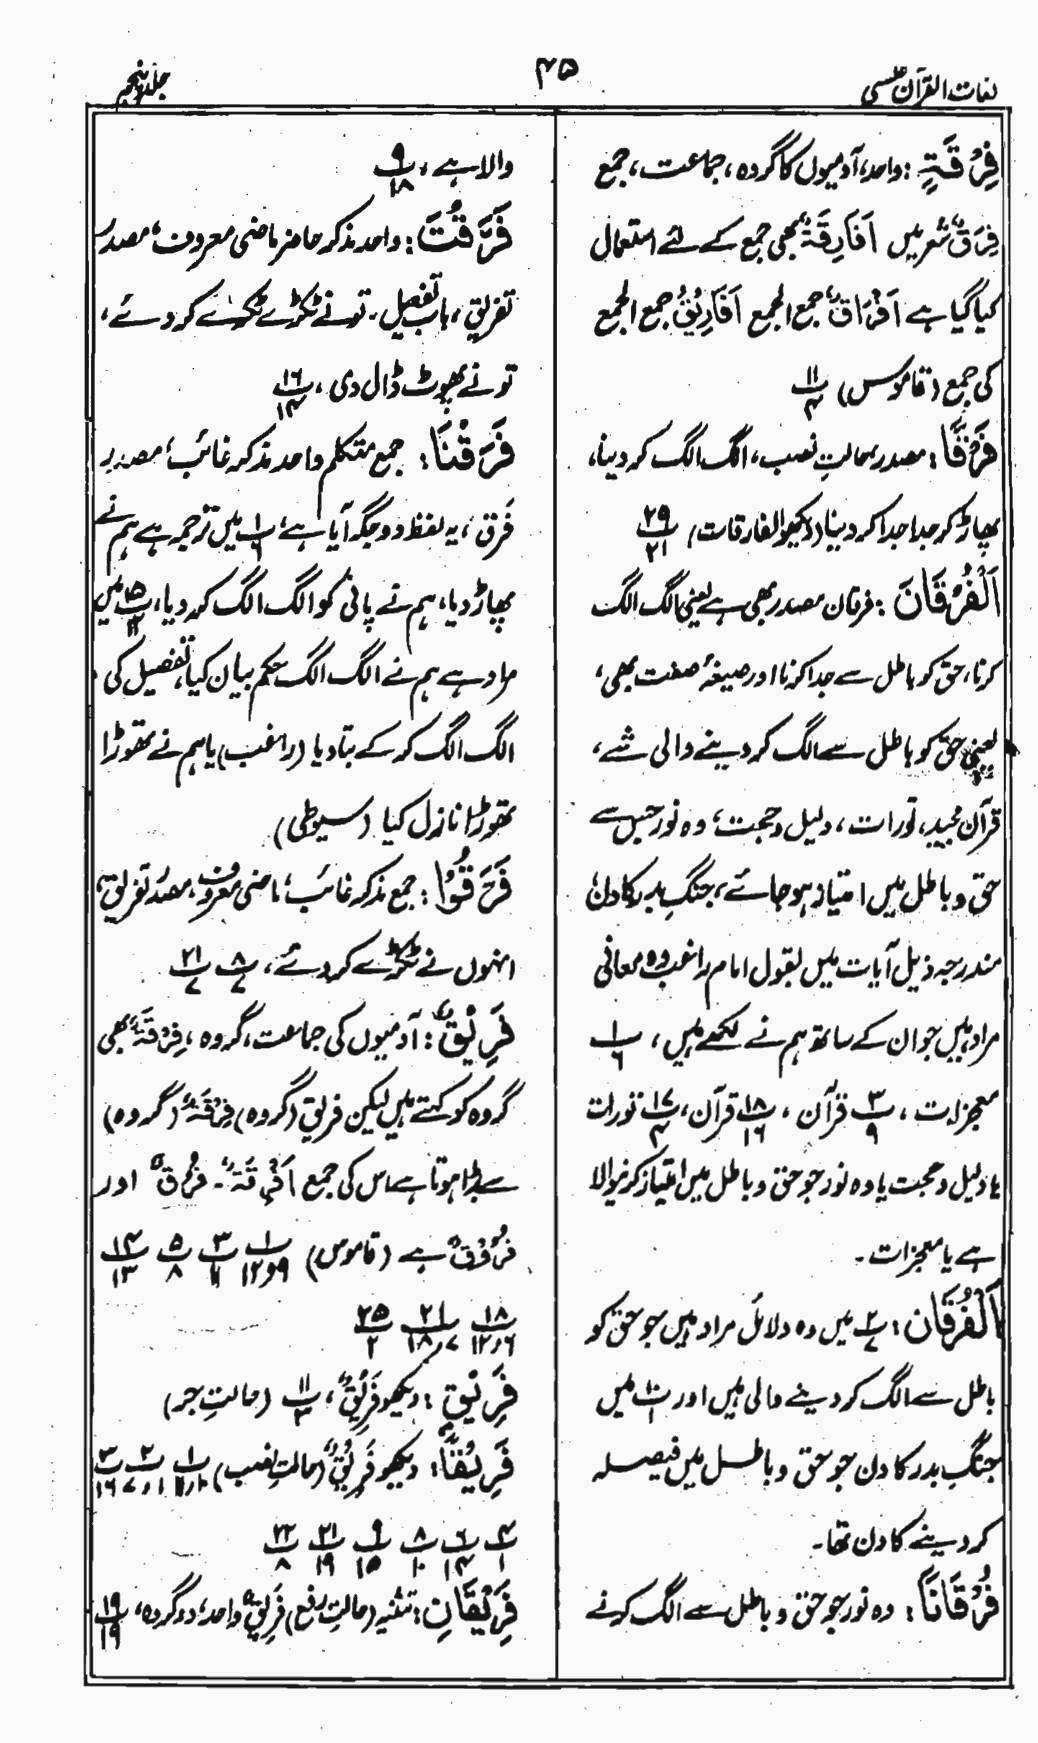 لغات القرآن عکسی
۴۵
جلد پنجم
فِرْقَۃٍ : واحد، آدمیوں کا گروہ، جماعت، جمع
فِرَقٌ شعر میں اَفَارِقَۃٌ بھی جمع کے لئے استعمال
کیا گیا ہے اَفْرَاقٌ جمع الجمع اَفَارِیْقُ جمع الجمع
کی جمع (قاموس) پ ۱۱/۴
فَرْقًا : مصدر بحالتِ نصب، الگ الگ کر دینا،
پھاڑ کر جدا جدا کر دینا (دیکھو الفارقات) پ ۲۹/۲۱
اَلْفُرْقَانَ : فرقان مصدر بھی ہے یعنی الگ الگ
کرنا، حق کو باطل سے جدا کرنا اور صیغۂ صفت بھی،
یعنی حق کو باطل سے الگ کر دینے والی شے،
قرآن مجید، تورات، دلیل و حجت، وہ نور جس سے
حق و باطل میں امتیاز ہو جائے، جنگِ بدر کا دن
مندرجہ ذیل آیات میں بقول امام راغب وہ معانی
مراد ہیں جو ان کے ساتھ ہم نے لکھے ہیں، پ ۱/۶
معجزات، پ ۳/۹ قرآن، پ ۱۸/۱۶ قرآن، پ ۱۷/۴ تورات
یا دلیل و حجت یا وہ نور جو حق و باطل میں امتیاز کرنیوالا
ہے یا معجزات۔
اَلْفُرْقَان : پ ۲/۷ میں وہ دلائل مراد ہیں جو حق کو
باطل سے الگ کر دینے والی ہیں اور پ ۱۰/۱ میں
جنگِ بدر کا دن جو حق و باطل میں فیصلہ
کر دینے کا دن تھا۔
فُرْقَانًا : وہ نور جو حق و باطل سے الگ کرنے
والا ہے، پ ۹/۱۸
فَرَّقْتَ : واحد مذکر حاضر ماضی معروف، مصدر
تفریق، باب تفعیل۔ تو نے ٹکڑے ٹکڑے کر دئے،
تو نے پھوٹ ڈال دی، پ ۱۶/۱۴
فَرَقْنَا : جمع متکلم واحد مذکر غائب، مصدر
فَرق، یہ لفظ دو جگہ آیا ہے، پ ۱/۶ میں ترجمہ ہے ہم نے
پھاڑ دیا، ہم نے پانی کو الگ الگ کر دیا، پ ۱۵/۱۲ میں
مراد ہے ہم نے الگ الگ حکم بیان کیا، تفصیل کی،
الگ الگ کر کے بتا دیا (راغب) یا ہم نے تھوڑا
تھوڑا نازل کیا (سیوطی)
فَرَّقُوْا : جمع مذکر غائب، ماضی معروف، مصدر تفریق،
انہوں نے ٹکڑے کر دئے، پ ۸/۷ پ ۲۱/۷
فَرِیْقٌ : آدمیوں کی جماعت، گروہ، فِرْقَۃٌ بھی
گروہ کو کہتے ہیں لیکن فریق (گروہ) فِرْقَۃٌ (گروہ)
سے بڑا ہوتا ہے اس کی جمع اَفْرِقَۃٌ۔ فُرُقٌ اور
فُرُوْقٌ ہے (قاموس) پ ۱/۹و۱۲ پ ۳/۱۱ پ ۵/۸ پ ۱۴/۱۳
پ ۱۸/۶و۱۲ پ ۲۱/۷و۱۸ پ ۲۵/۲
فَرِیْقٍ : دیکھو فَرِیْقٌ، پ ۱۱/۳ (حالتِ جر)
فَرِیْقًا : دیکھو فَرِیْقٌ (حالتِ نصب) پ ۱/۱۰و۱۱ پ ۲/۱و۷ پ ۳/۱۶
پ ۴/۱ پ ۶/۱۴ پ ۸/۱۰ پ ۹/۱۵ پ ۲۱/۱۹ پ ۲۲/۸
فَرِیْقَانِ : تثنیہ (حالتِ رفع) فَرِیْقٌ واحد، دو گروہ، پ ۱۹/۱۹